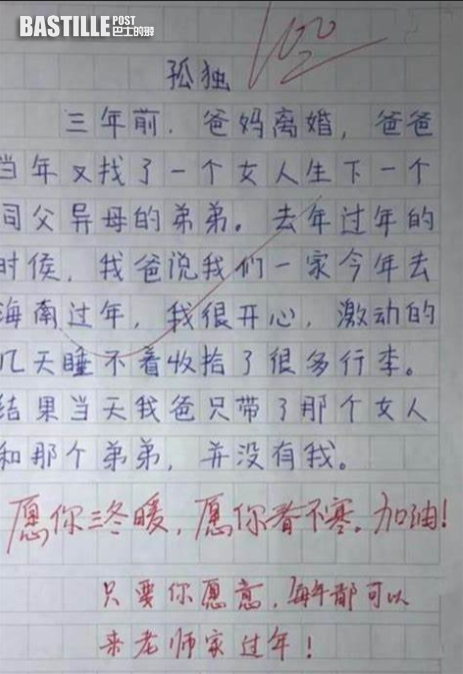 BASTILLE POST
巴士的報
100
孤独
三年前，爸妈离婚，爸爸
当年又找了一个女人生下一个
同父异母的弟弟。去年过年的
时侯，我爸说我们一家今年去
海南过年，我很开心，激动的
几天睡不着收拾了很多行李。
结果当天我爸只带了那个女人
和那个弟弟，并没有我。
愿你三冬暖，愿你春不寒。加油！
只要你愿意，每年都可以
来老师家过年！